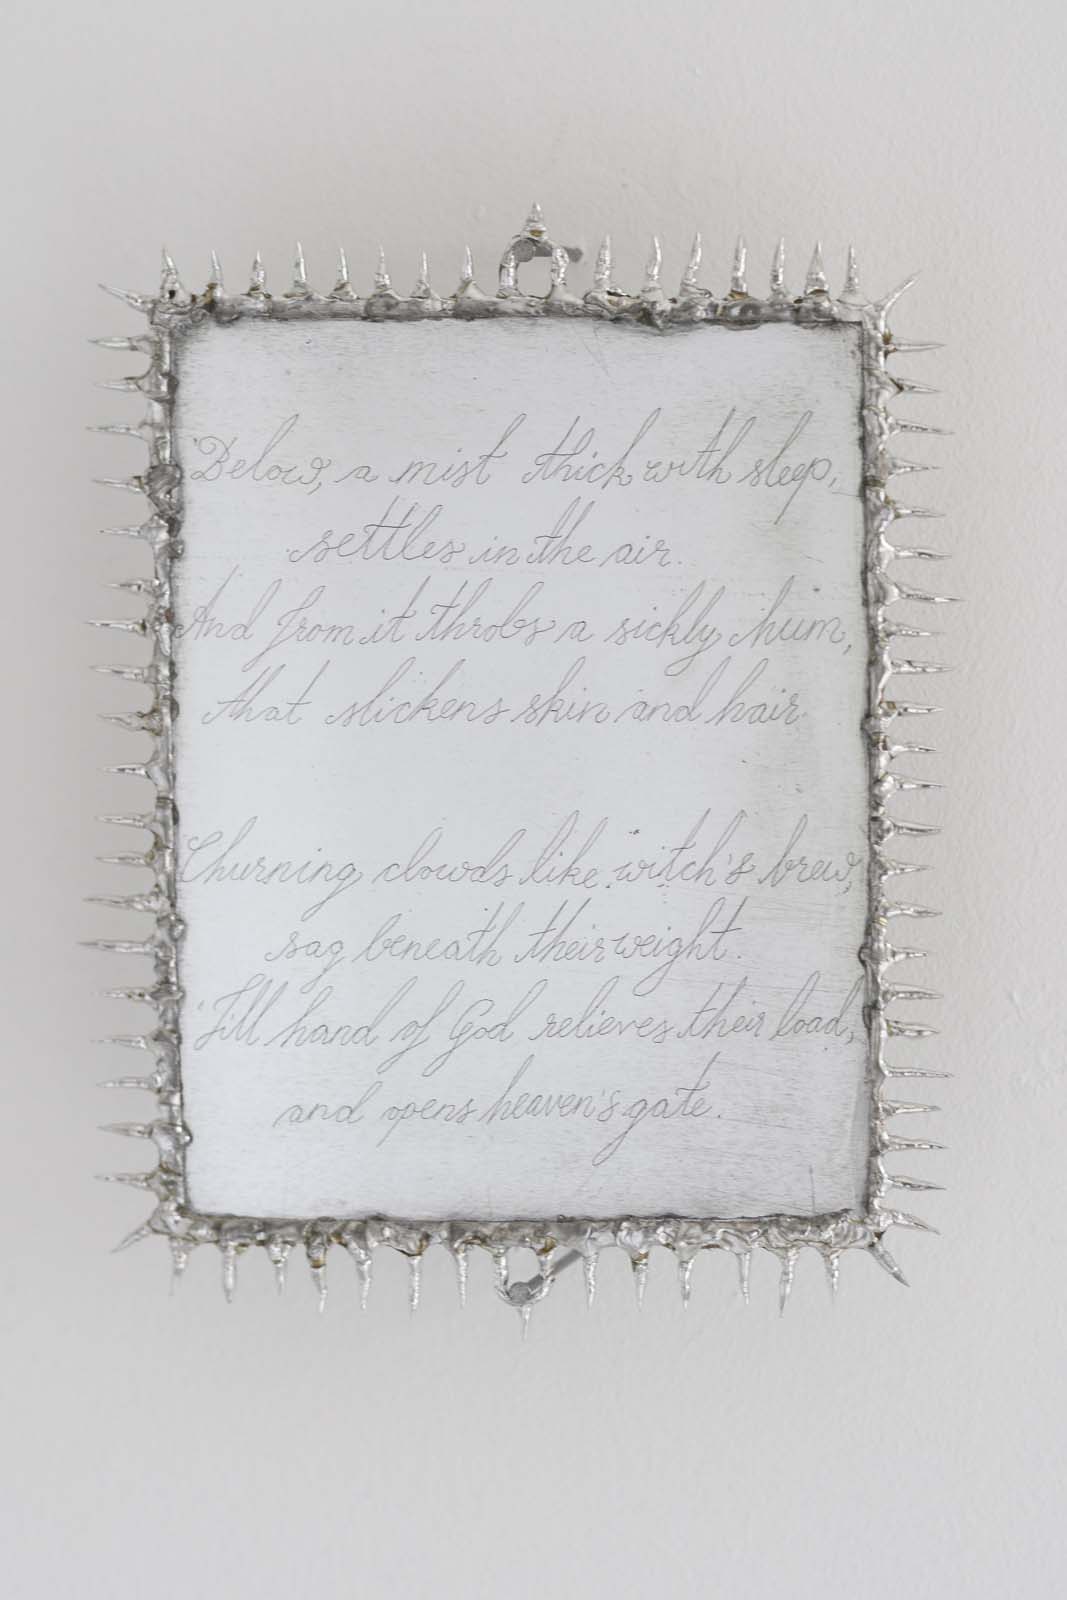 Below, a mist thick with sleep,
settles in the air.
And from it throbs a sickly hum,
that slickens skin and hair.
Churning clouds like witch's brew,
sag beneath their weight.
'Till hand of God relieves their load,
and opens heaven's gate.